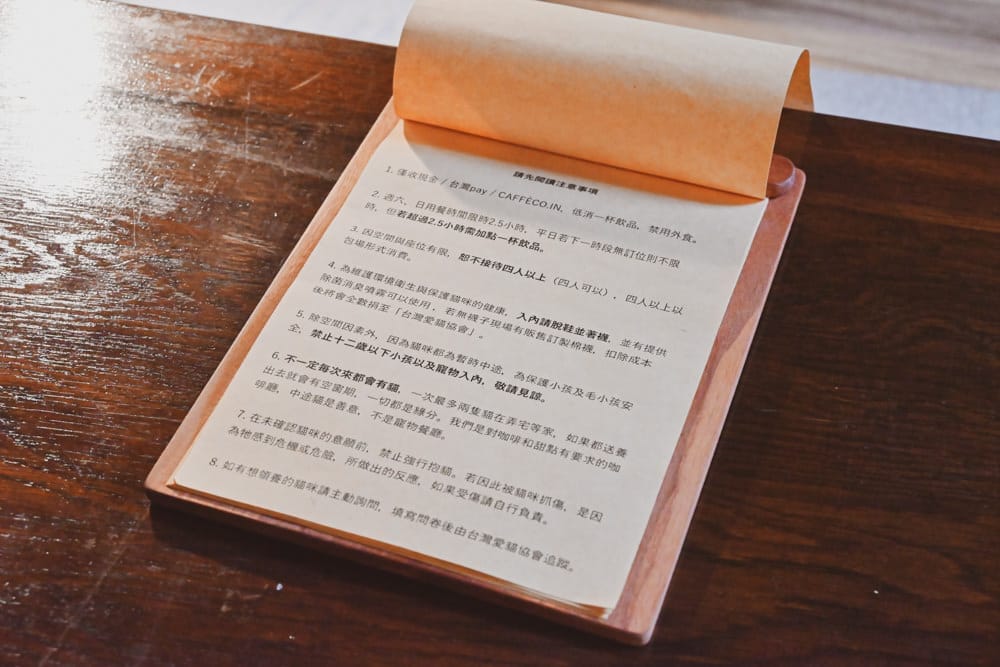 請先閱讀注意事項
1. 僅收現金 / 台灣pay / CAFFÈCO.IN，低消一杯飲品，禁用外食。
2. 週六、日用餐時間限時2.5小時，平日若下一時段無訂位則不限
時，但若超過2.5小時需加點一杯飲品。
3. 因空間與座位有限，恕不接待四人以上（四人可以），四人以上以
包場形式消費。
4. 為維護環境衛生與保護貓咪的健康，入內請脫鞋並著襪，並有提供
除菌消臭噴霧可以使用，若無襪子現場有販售訂製棉襪，扣除成本
後將會全數捐至「台灣愛貓協會」。
5. 除空間因素外，因為貓咪都為暫時中途，為保護小孩及毛小孩安
全，禁止十二歲以下小孩以及寵物入內，敬請見諒。
6. 不一定每次來都會有貓，一次最多兩隻貓在弄宅等家，如果都送養
出去就會有空窗期，一切都是緣分。我們是對咖啡和甜點有要求的咖
啡廳，中途貓是善意，不是寵物餐廳。
7. 在未確認貓咪的意願前，禁止強行抱貓。若因此被貓咪抓傷，是因
為牠感到危機或危險，所做出的反應，如果受傷請自行負責。
8. 如有想領養的貓咪請主動詢問，填寫問卷後由台灣愛貓協會追蹤。